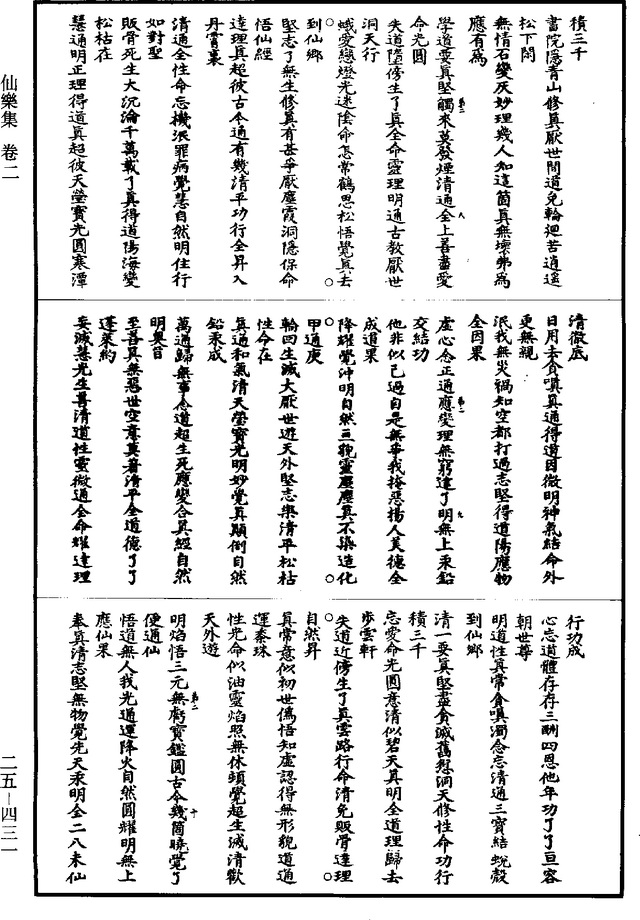 積三千
書院隱青山修真厭世間道免輪迴苦逍遥
松下閑
無情石變灰妙理幾人知這箇真無壞弗為
應有為
學道要真堅觸來莫發煙清通全上善盡愛
命光圓
失道墮傍生了真全命靈理明通古教厭世
洞天行
蛾愛戀燈光迷陰命怎常鶴思松悟覺真去
到仙鄉
堅志了無生修真有甚爭厭塵霞洞隱保命
悟仙經
達理真超彼古今通有幾清平功行全昇入
丹霄裏
清通全性命忘機泯罪病覺慧自然明住行
如對聖
販骨死生大沉淪千萬載了真得道陽海變
松枯在
慧通明正理得道真超彼天瑩寶光圓寒潭
清徹底
日用去貪嗔真通得道因微明神氣結命外
更無親
泯我無災禍知空都打過志堅得道陽應物
全因果
虛心念正通應變理無窮達了明無上汞鉛
交結功
他非似己過自是無爭我掩惡揚人美德全
成道果
降耀覺沖明自然三貌靈塵塵真不染造化
甲通庚
輪回生滅大厭世遊天外堅志樂清平松枯
性命在
真通和氣清天瑩寶光明妙覺真顛倒自然
鉛汞成
萬通歸無事念道超生死應變合真經自然
明奧旨
至善真無惡世空意莫著清平全道德了了
蓬萊約
妄滅慧光生善清道性靈微通全命耀達理
行功成
心忘道體存存三酬四恩他年功了了亘容
朝世尊
明道性真常貪嗔濁念忘清通三寶結蛻殼
到仙鄉
清一要真堅盡貪滅舊愆洞天修性命功行
積三千
忘愛命光圓意清似碧天真明全道理歸去
步雲軒
失道近傍生了真雲路行命清免販骨達理
自然昇
真常意似初世僞悟知虛認得無形貌道通
運泰珠
性光命似油靈焰照無休頭覺超生滅清歡
天外遊
明焰悟三元無虧寶鑑圓古今幾箇曉覺了
便通仙
悟道無人我光通運降火自然圓耀明無上
應仙果
養真清志堅無物覺先天汞明全二八未仙
仙樂集 卷二
二五-四三一